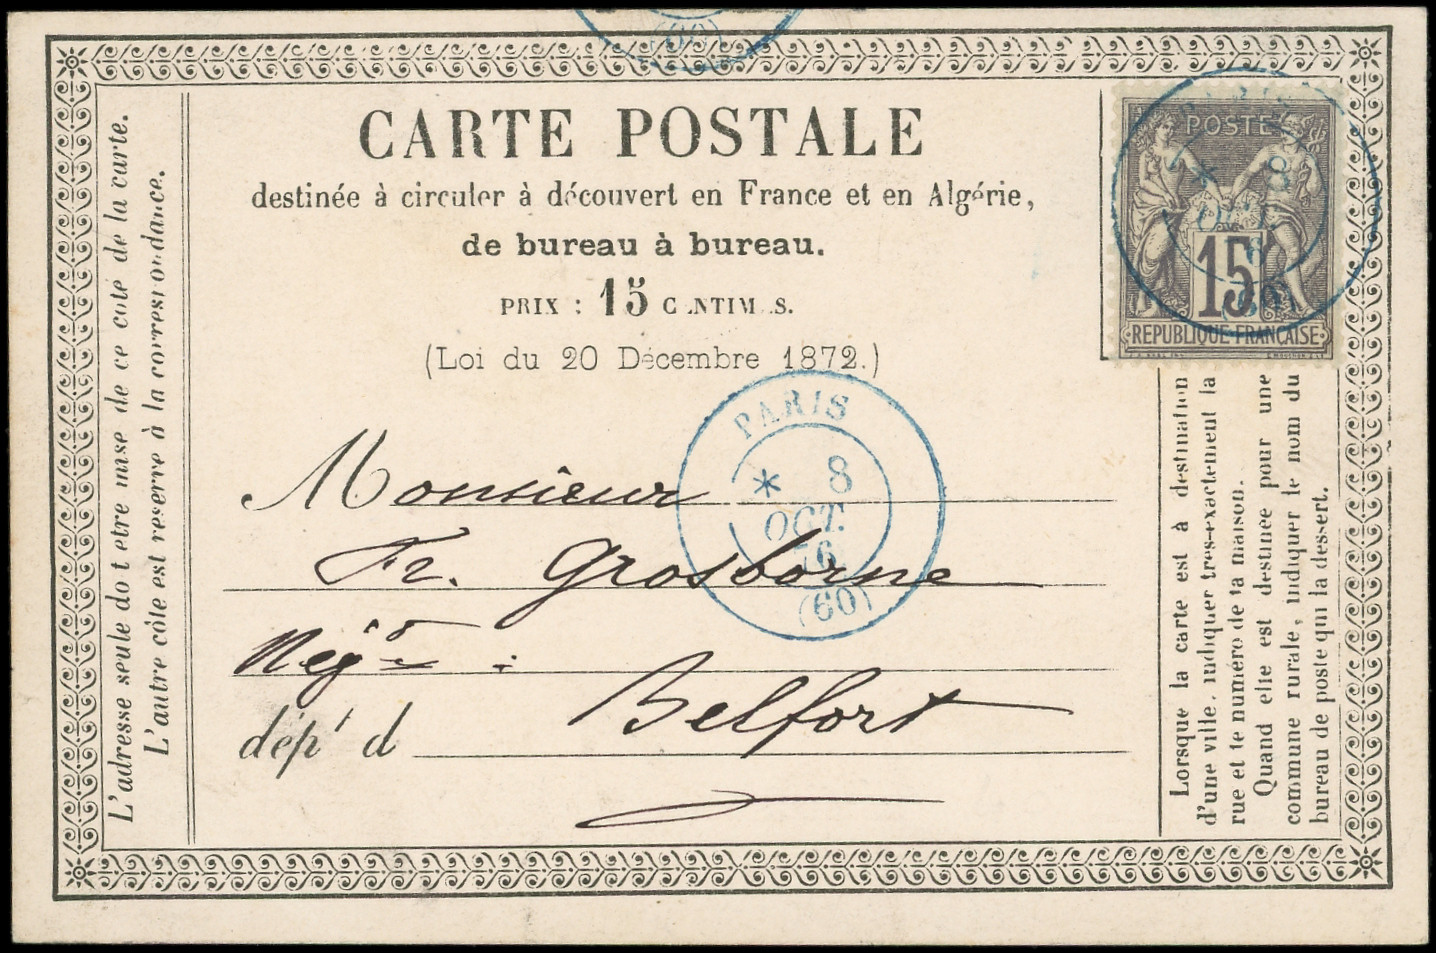 (60)
CARTE POSTALE
destinée à circuler à découvert en France et en Algérie,
de bureau à bureau.
PRIX : 15 CENTIMES.
(Loi du 20 Décembre 1872.)
POSTE
15
REPUBLIQUE FRANÇAISE
PARIS
* 8
OCT.
76
(60)
PARIS
* 8
OCT.
76
(60)
Monsieur
Fr. Grosborne
Négt
dépt d Belfort
L'adresse seule doit etre mise de ce coté de la carte.
L'autre côte est reserre à la correspondance.
Lorsque la carte est à destination
d'une ville, indiquer tres-exactement la
rue et le numéro de la maison.
Quand elle est destinée pour une
commune rurale, indiquer le nom du
bureau de poste qui la dessert.